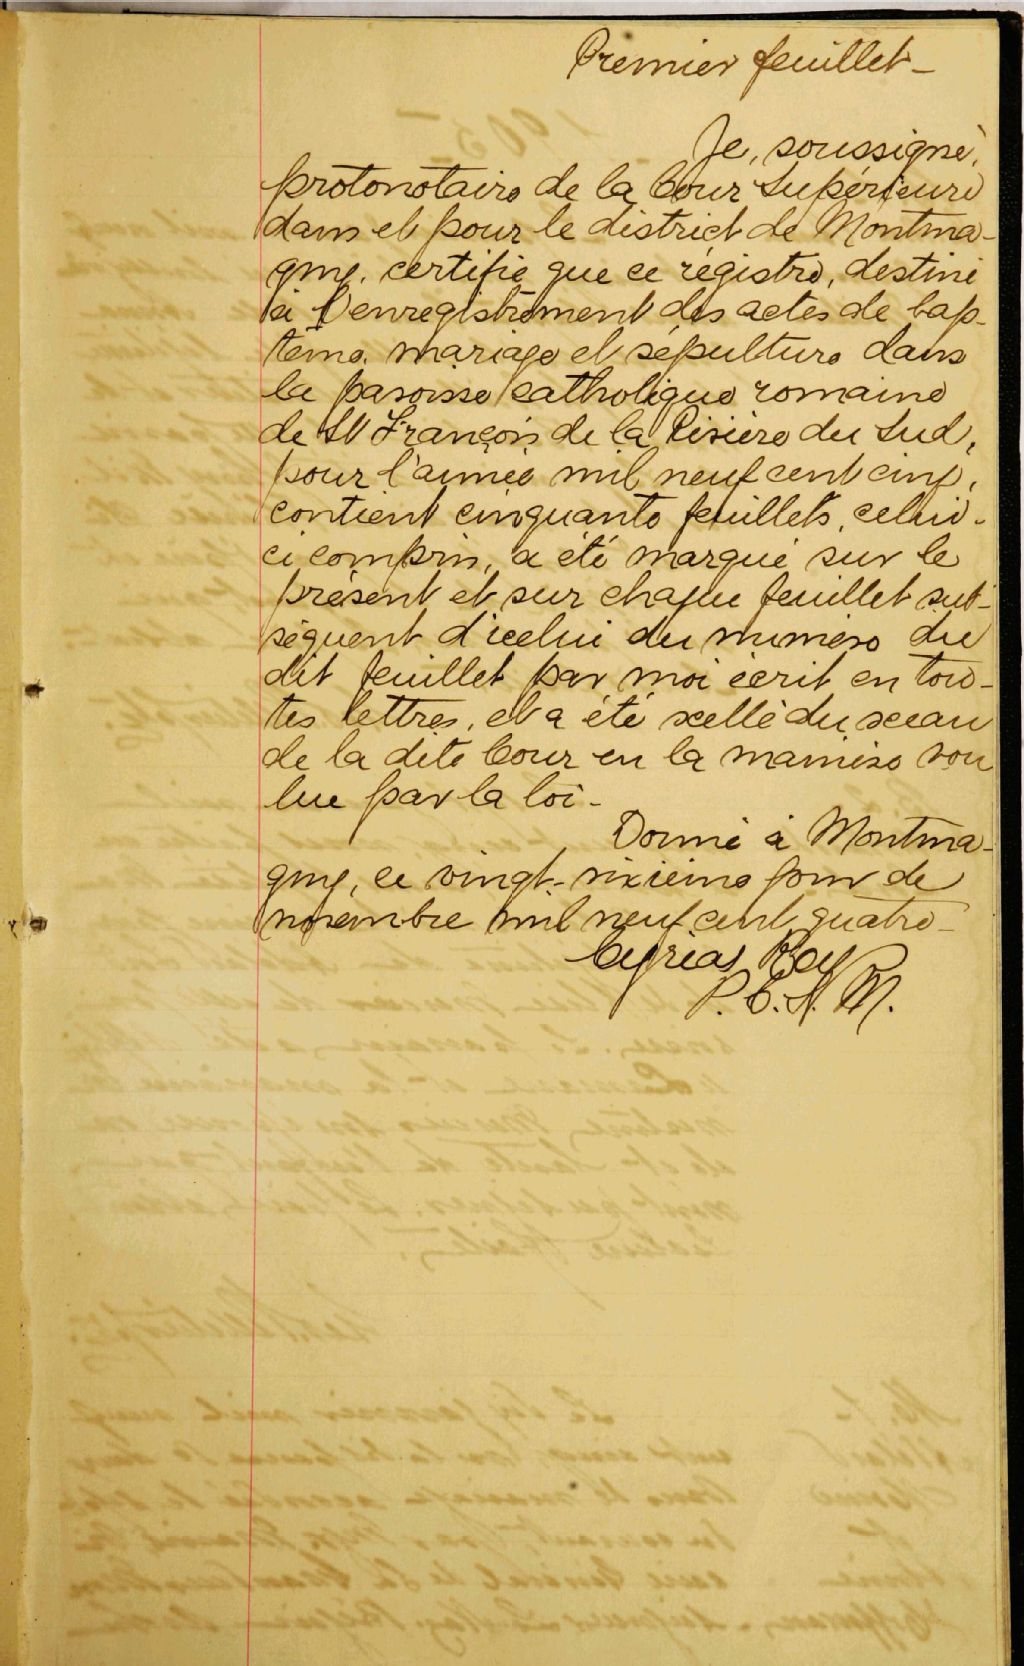 Premier feuillet-
Je, soussigné,
protonotaire de la Cour Supérieure
dans et pour le district de Montma-
gny, certifie que ce régistre, destiné
à l'enregistrement des actes de bap-
tême, mariage et sépulture dans
la paroisse catholique romaine
de St François de la Rivière du Sud,
pour l'année mil neuf cent cinq,
contient cinquante feuillets, celui-
ci compris, a été marqué sur le
présent et sur chaque feuillet sub-
séquent d'icelui du numéro du
dit feuillet par moi écrit en tou-
tes lettres, et a été scellé du sceau
de la dite Cour en la manière vou
lue par la loi-
Donné à Montma-
gny, ce vingt-sixième jour de
novembre mil neuf cent quatre-
Cyrias Roy
P.C.S.M.